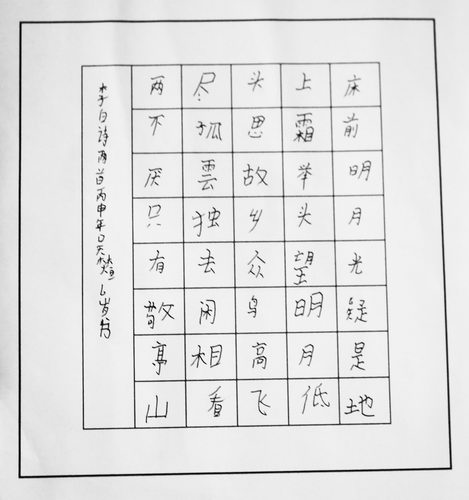 床前明月光疑是地
上霜举头望明月低
头思故乡众鸟高飞
尽孤雲独去闲相看
两不厌只有敬亭山
李白诗两首丙申年吴6岁书